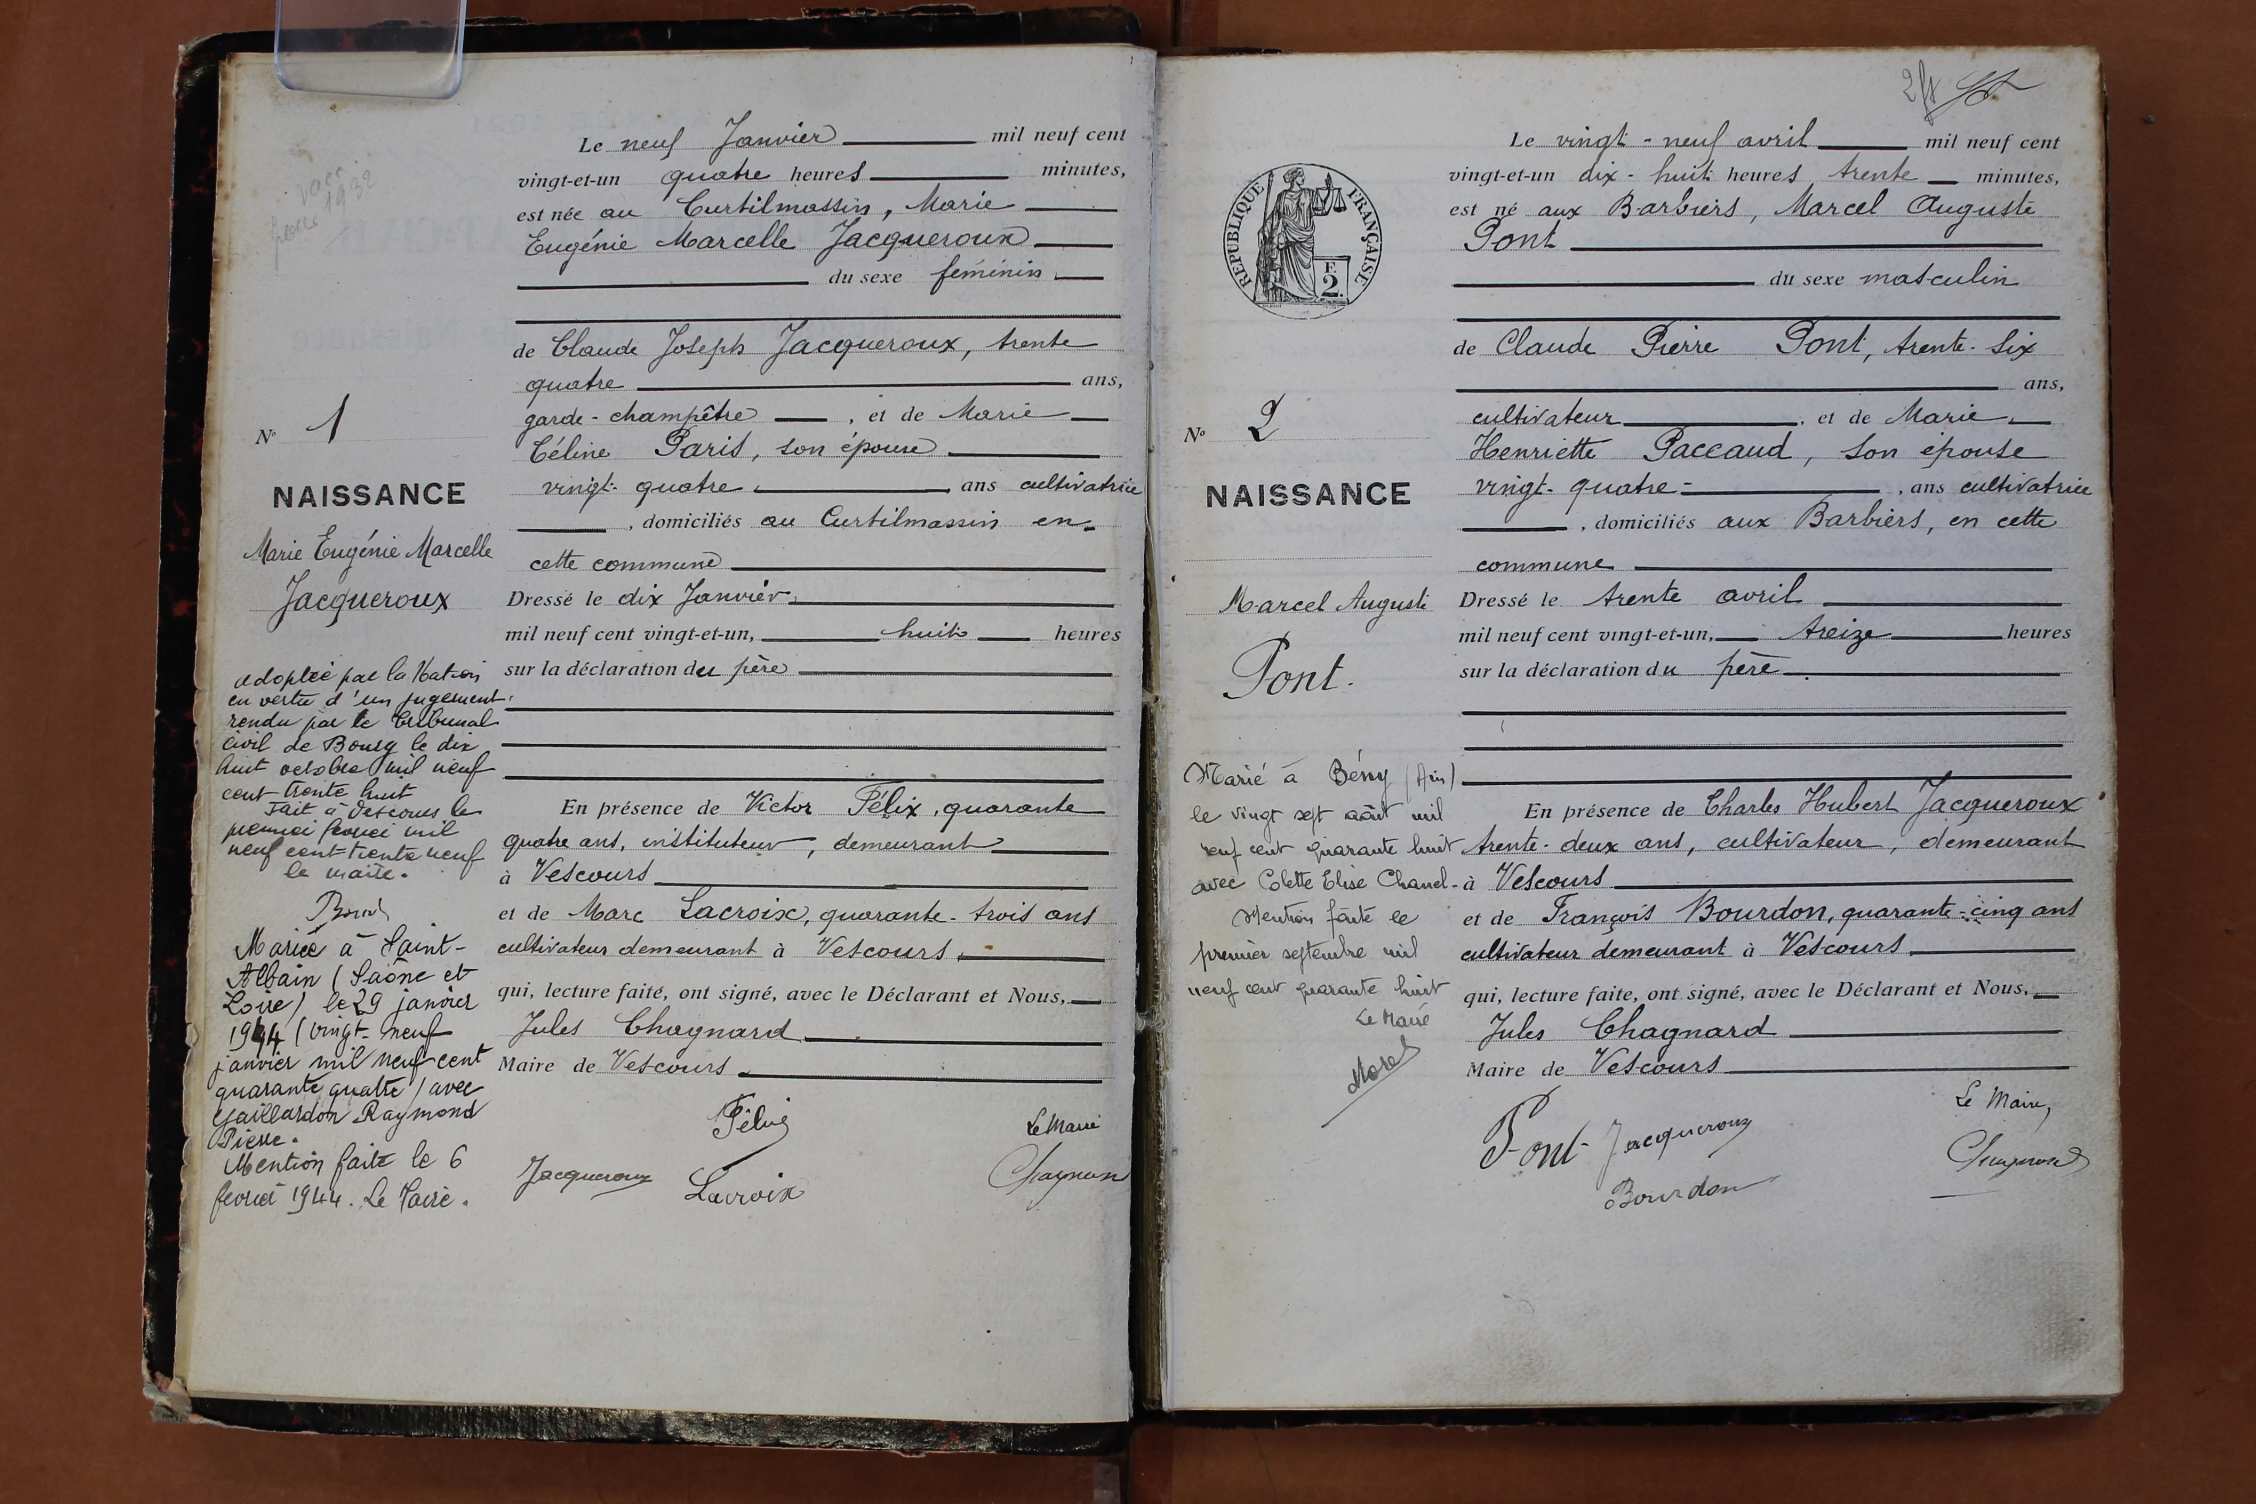 vacc
1932
Le neuf Janvier mil neuf cent
vingt-et-un quatre heures minutes,
est née au Curtilmassin, Marie
Eugénie Marcelle Jacqueroux
du sexe feminin
de Claude Joseph Jacqueroux, trente
quatre ans,
garde-champêtre, et de Marie
Céline Paris, son épouse
vingt-quatre ans cultivatrice
, domiciliés au Curtilmassin en
cette commune
Dressé le dix Janvier
mil neuf cent vingt-et-un, huit heures
sur la déclaration du père
En présence de Victor Félix, quarante
quatre ans, instituteur, demeurant
à Vescours
et de Marc Lacroix, quarante-trois ans
cultivateur demeurant à Vescours,
qui, lecture faite, ont signé, avec le Déclarant et Nous,
Jules Chagnard
Maire de Vescours
Félix
Le Maire
Jacqueroux Lacroix Chagnard
No 1
NAISSANCE
Marie Eugénie Marcelle
Jacqueroux
adoptée par la Nation
en vertu d'un jugement
rendu par le Tribunal
civil de Bourg le dix
huit octobre mil neuf
cent trente huit
Fait à Vescours le
premier février mil
neuf cent trente neuf
le maire.
Mariée à Saint-
Albain (Saône et
Loire) le 29 janvier
1944 (vingt-neuf
janvier mil neuf cent
quarante quatre) avec
Gaillardon Raymond
Pierre.
Mention faite le 6
février 1944. Le Maire.
2
RÉPUBLIQUE FRANÇAISE
F.
2.
Le vingt-neuf avril mil neuf cent
vingt-et-un dix-huit heures trente minutes,
est né aux Barbiers, Marcel Auguste
Pont
du sexe masculin
de Claude Pierre Pont, trente-six
ans,
cultivateur, et de Marie
Henriette Paccaud, son épouse
vingt-quatre, ans cultivatrice
, domiciliés aux Barbiers, en cette
commune
Dressé le trente avril
mil neuf cent vingt-et-un, treize heures
sur la déclaration du père
En présence de Charles Hubert Jacqueroux
trente-deux ans, cultivateur, demeurant
à Vescours
et de François Bourdon, quarante-cinq ans
cultivateur demeurant à Vescours
qui, lecture faite, ont signé, avec le Déclarant et Nous,
Jules Chagnard
Maire de Vescours
Le Maire,
Pont Jacqueroux
Bourdon Chagnard
No 2
NAISSANCE
Marcel Auguste
Pont.
Marié à Bény (Ain)
le vingt sept août mil
neuf cent quarante huit
avec Colette Elise Chanel-
Mention faite le
premier septembre mil
neuf cent quarante huit
Le Maire
Morel